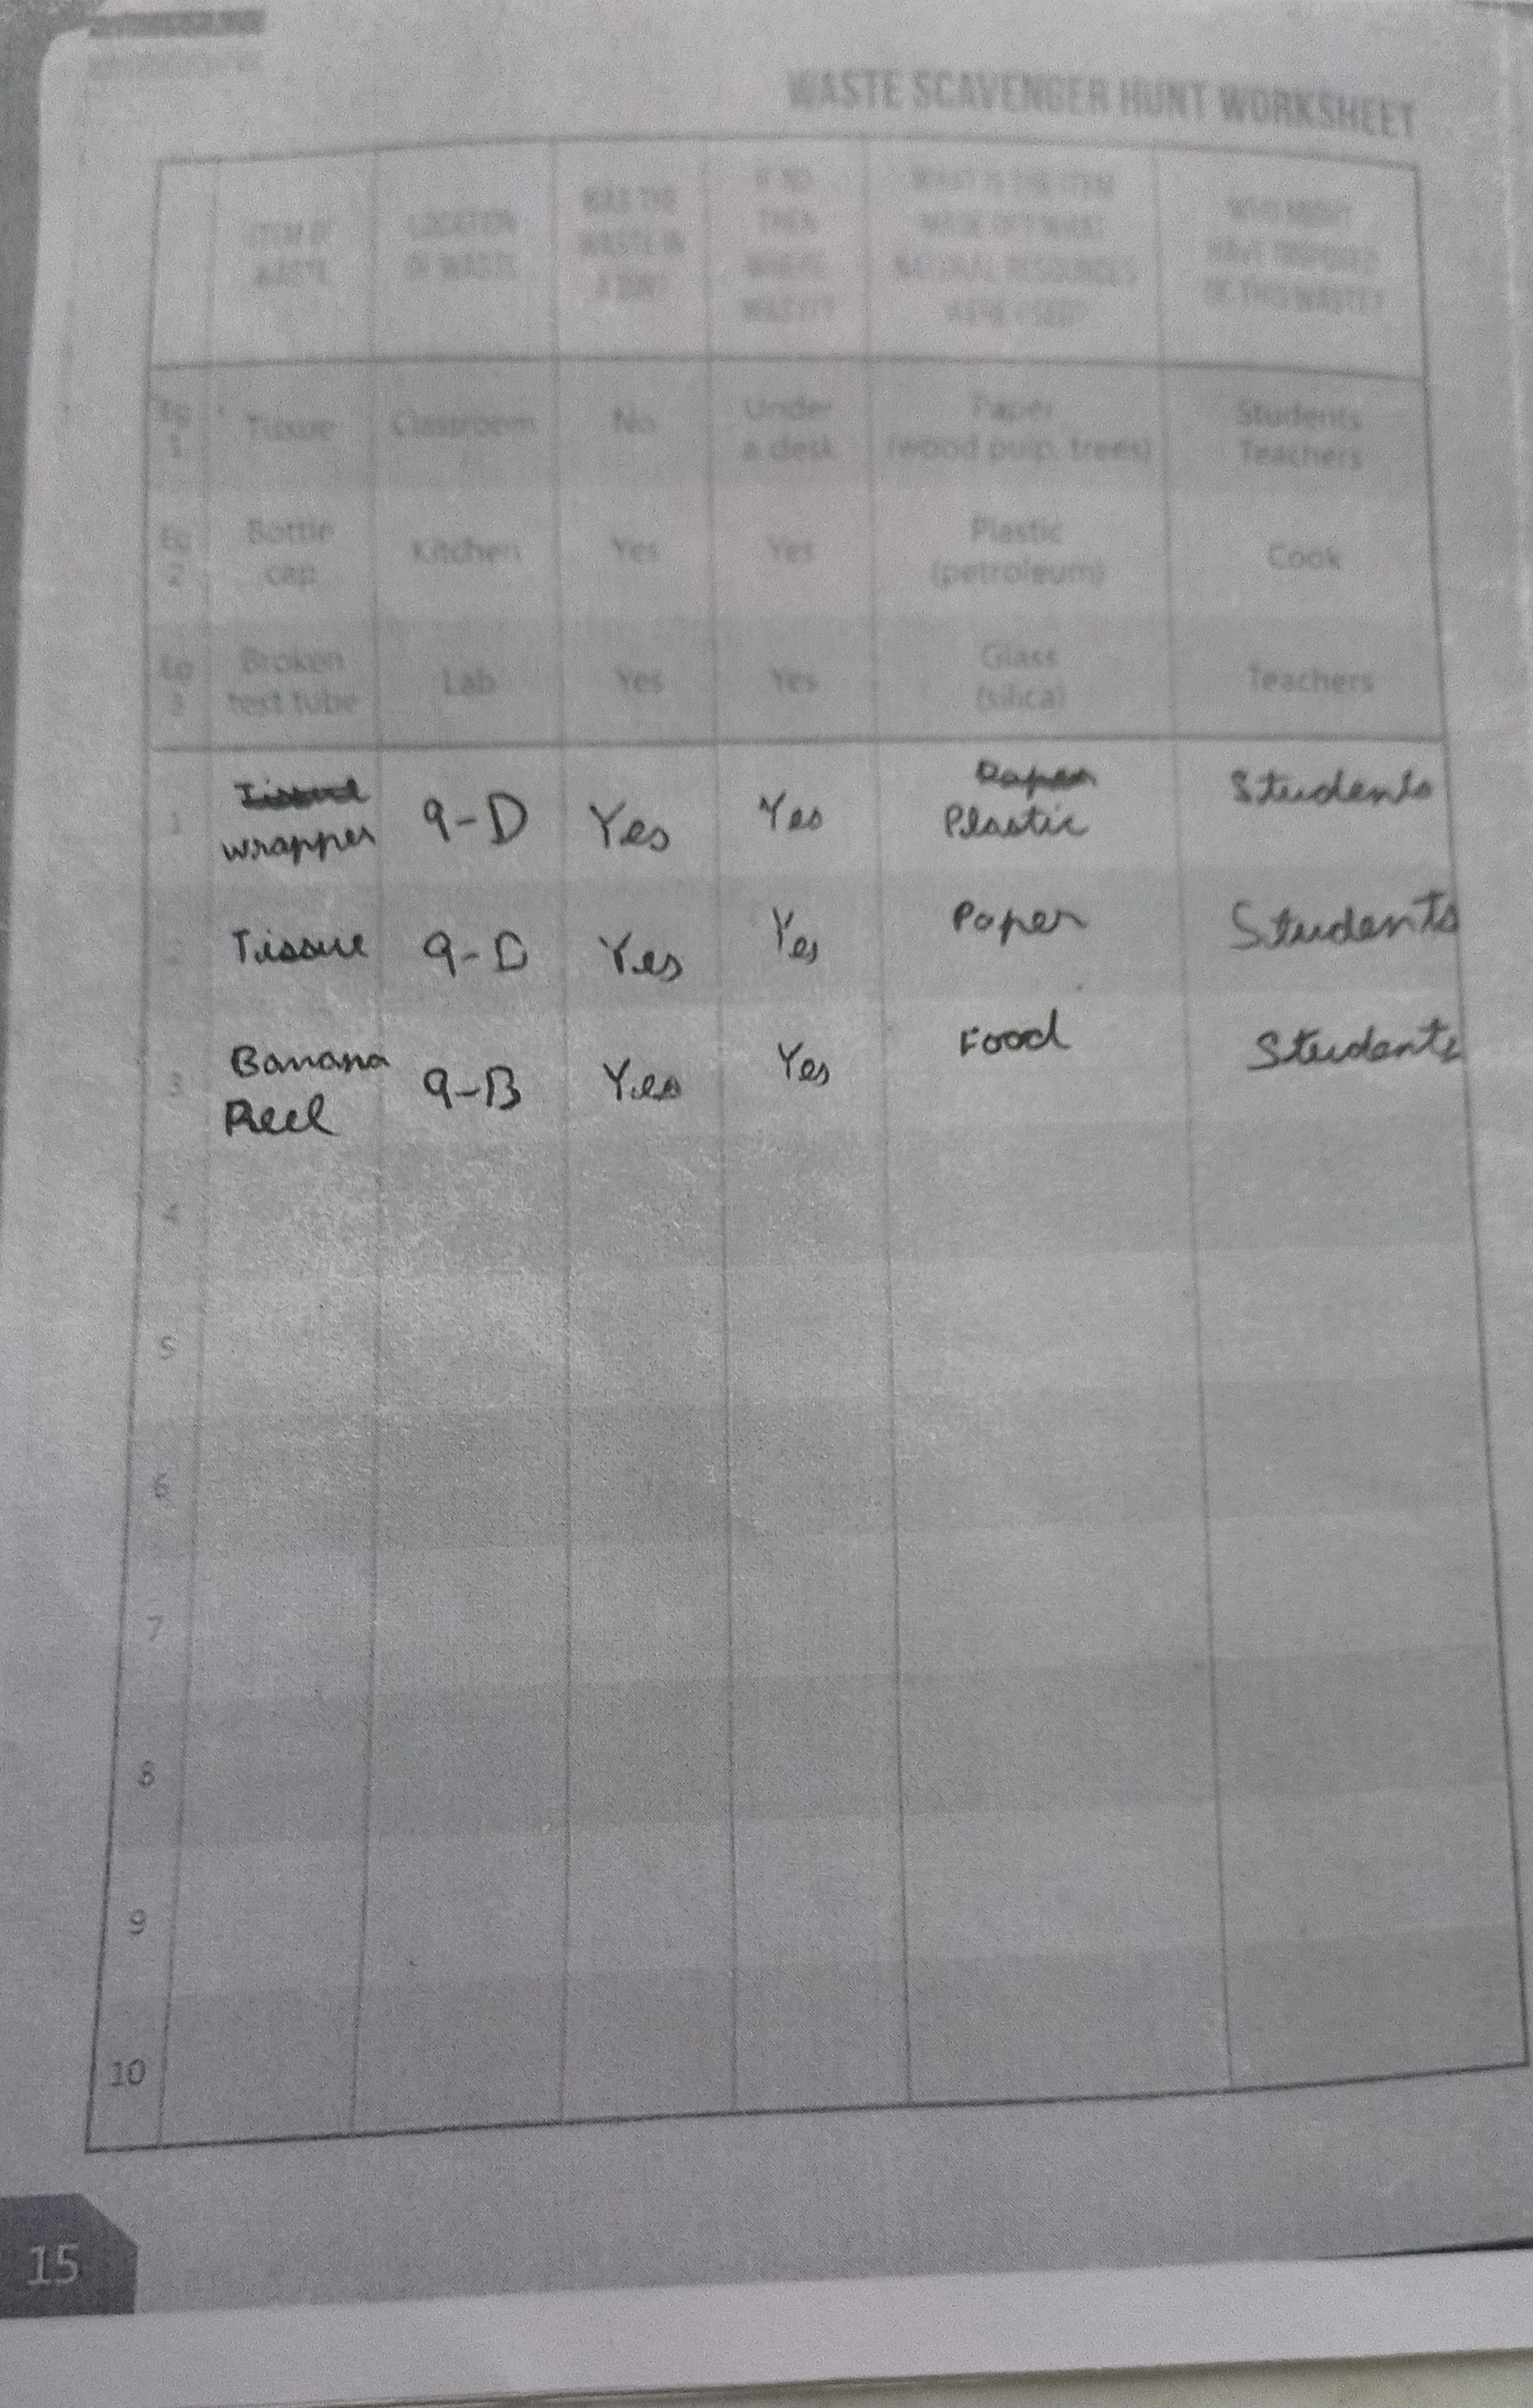 WASTE SCAVENGER HUNT WORKSHEET
ITEM OF WASTE
LOCATION OF WASTE
WAS THE WASTE IN A BIN?
IF NO, THEN WHERE WAS IT?
WHAT IS THE ITEM MADE OF? WHAT NATURAL RESOURCES WERE USED?
WHO MIGHT HAVE DISPOSED OF THIS WASTE?
Eg 1 Tissue Classroom No Under a desk Paper (wood pulp, trees) Students Teachers
Eg 2 Bottle cap Kitchen Yes Yes Plastic (petroleum) Cook
Eg 3 Broken test tube Lab Yes Yes Glass (silica) Teachers
1 Tissue wrapper 9-D Yes Yes Paper Plastic Students
2 Tissue 9-D Yes Yes Paper Students
3 Banana Peel 9-B Yes Yes Food Students
4
5
6
7
8
9
10
15